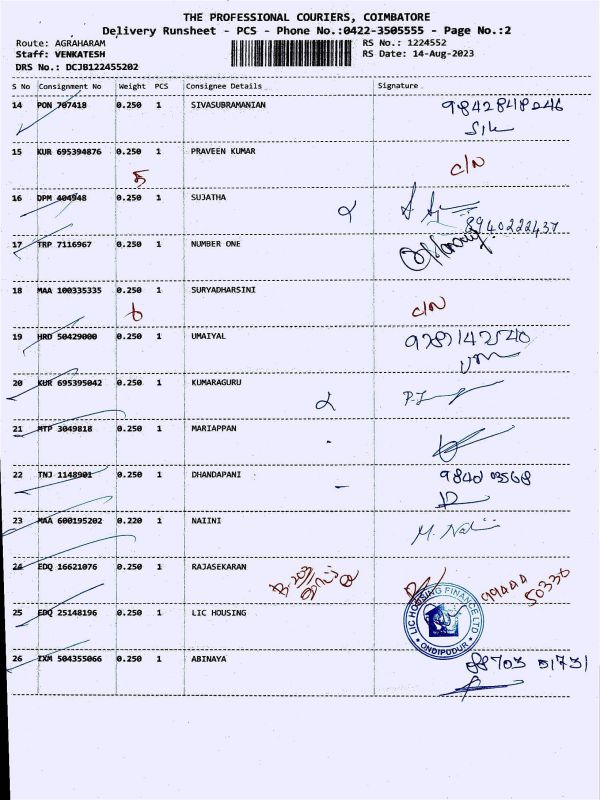 THE PROFESSIONAL COURIERS, COIMBATORE
Delivery Runsheet - PCS - Phone No.:0422-3505555 - Page No.:2
Route: AGRAHARAM RS No.: 1224552
Staff: VENKATESH RS Date: 14-Aug-2023
DRS No.: DCJB122455202
S No Consignment No Weight PCS Consignee Details Signature
14 PON 707418 0.250 1 SIVASUBRAMANIAN 9842848246
15 KUR 695394876 0.250 1 PRAVEEN KUMAR C/N
16 DPM 404948 0.250 1 SUJATHA
8940222437
17 TRP 7116967 0.250 1 NUMBER ONE
18 MAA 100335335 0.250 1 SURYADHARSINI C/N
19 HRD 50429000 0.250 1 UMAIYAL
20 KUR 695395042 0.250 1 KUMARAGURU
21 MTP 3049818 0.250 1 MARIAPPAN
22 TNJ 1148901 0.250 1 DHANDAPANI
23 MAA 600195202 0.220 1 NAIINI
24 EDQ 16621076 0.250 1 RAJASEKARAN 99444 50336
25 EDQ 25148196 0.250 1 LIC HOUSING LIC HOUSING FINANCE LTD. ONDIPUDUR
26 IXM 504355066 0.250 1 ABINAYA 88703 01731